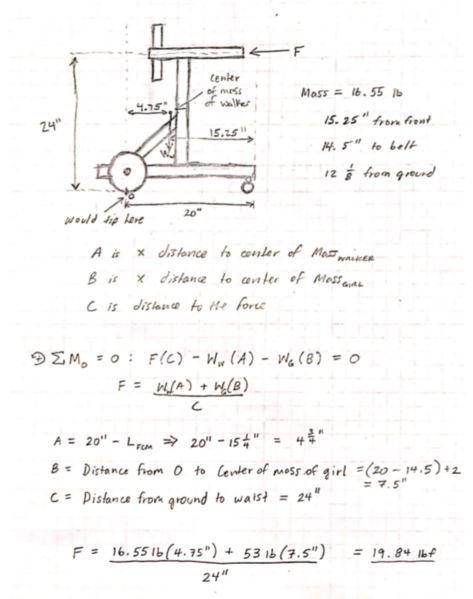 F
center
of mass
of walker
4.75"
24"
15.25"
W
O
would tip here
20"
Mass = 16.55 lb
15.25" from front
14.5" to belt
12 1/8 from ground
A is x distance to center of Mass WALKER
B is x distance to center of Mass GIRL
C is distance to the force
ΣM₀ = 0 : F(C) - W_W (A) - W_G (B) = 0
F = W_W(A) + W_G(B)
C
A = 20" - L_FCM ⇒ 20" - 15 1/4" = 4 3/4"
B = Distance from O to Center of mass of girl = (20 - 14.5) + 2
= 7.5"
C = Distance from ground to waist = 24"
F = 16.55 lb (4.75") + 53 lb (7.5") = 19.84 lbf
24"